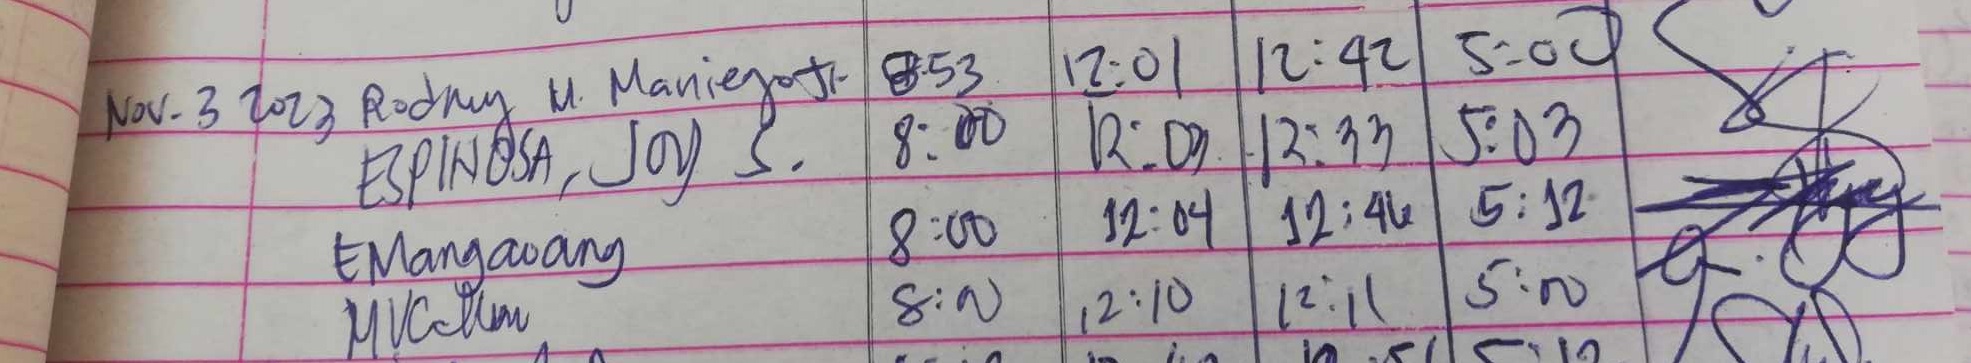 Nov. 3 2023 Rodney M. Maniego Jr. 8:53 12:01 12:42 5:00
ESPINOSA, JOY S. 8:00 12:03 12:33 5:03
EMangaoang 8:00 12:04 12:46 5:12
8:00 12:10 12:11 5:00
5:12